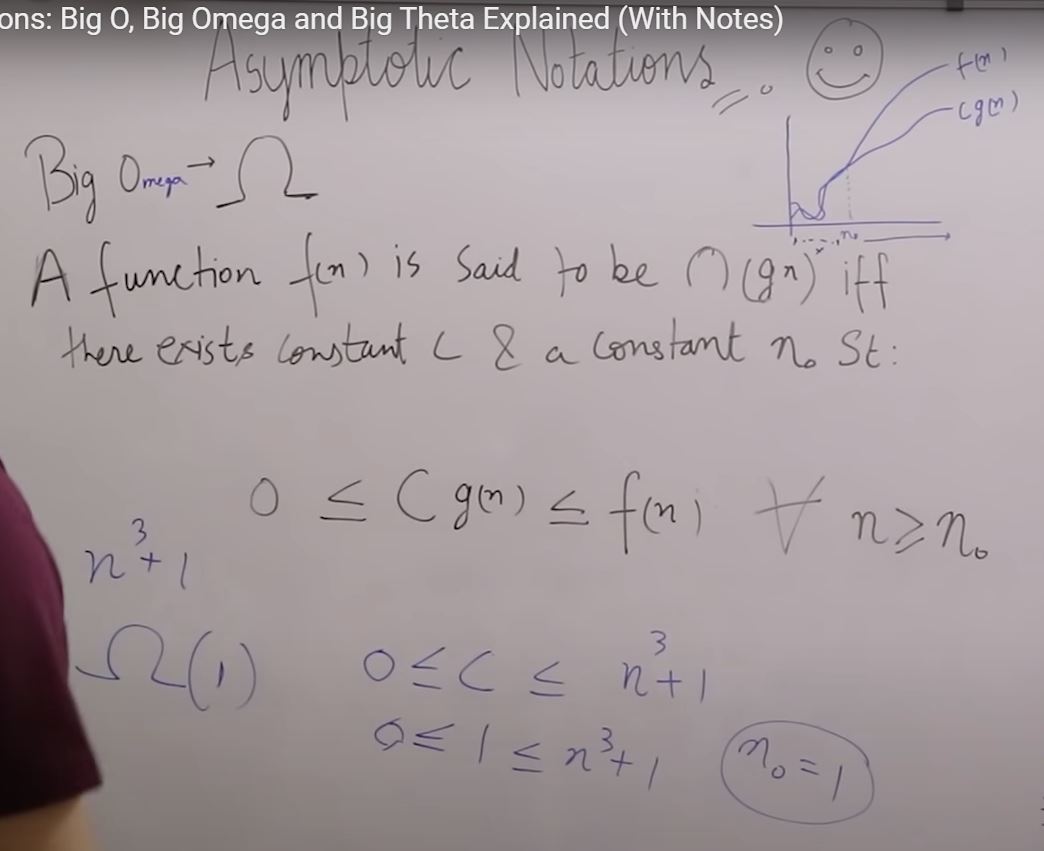 ons: Big O, Big Omega and Big Theta Explained (With Notes)
Asymptotic Notations
f(n)
Cg(n)
Big Omega → Ω
n₀
A function f(n) is said to be ∩(gn) iff
there exists constant C & a constant n₀ St:
0 ≤ C g(n) ≤ f(n) ∀ n ≥ n₀
n³+1
Ω(1) 0 ≤ C ≤ n³+1
0 ≤ 1 ≤ n³+1 n₀ = 1